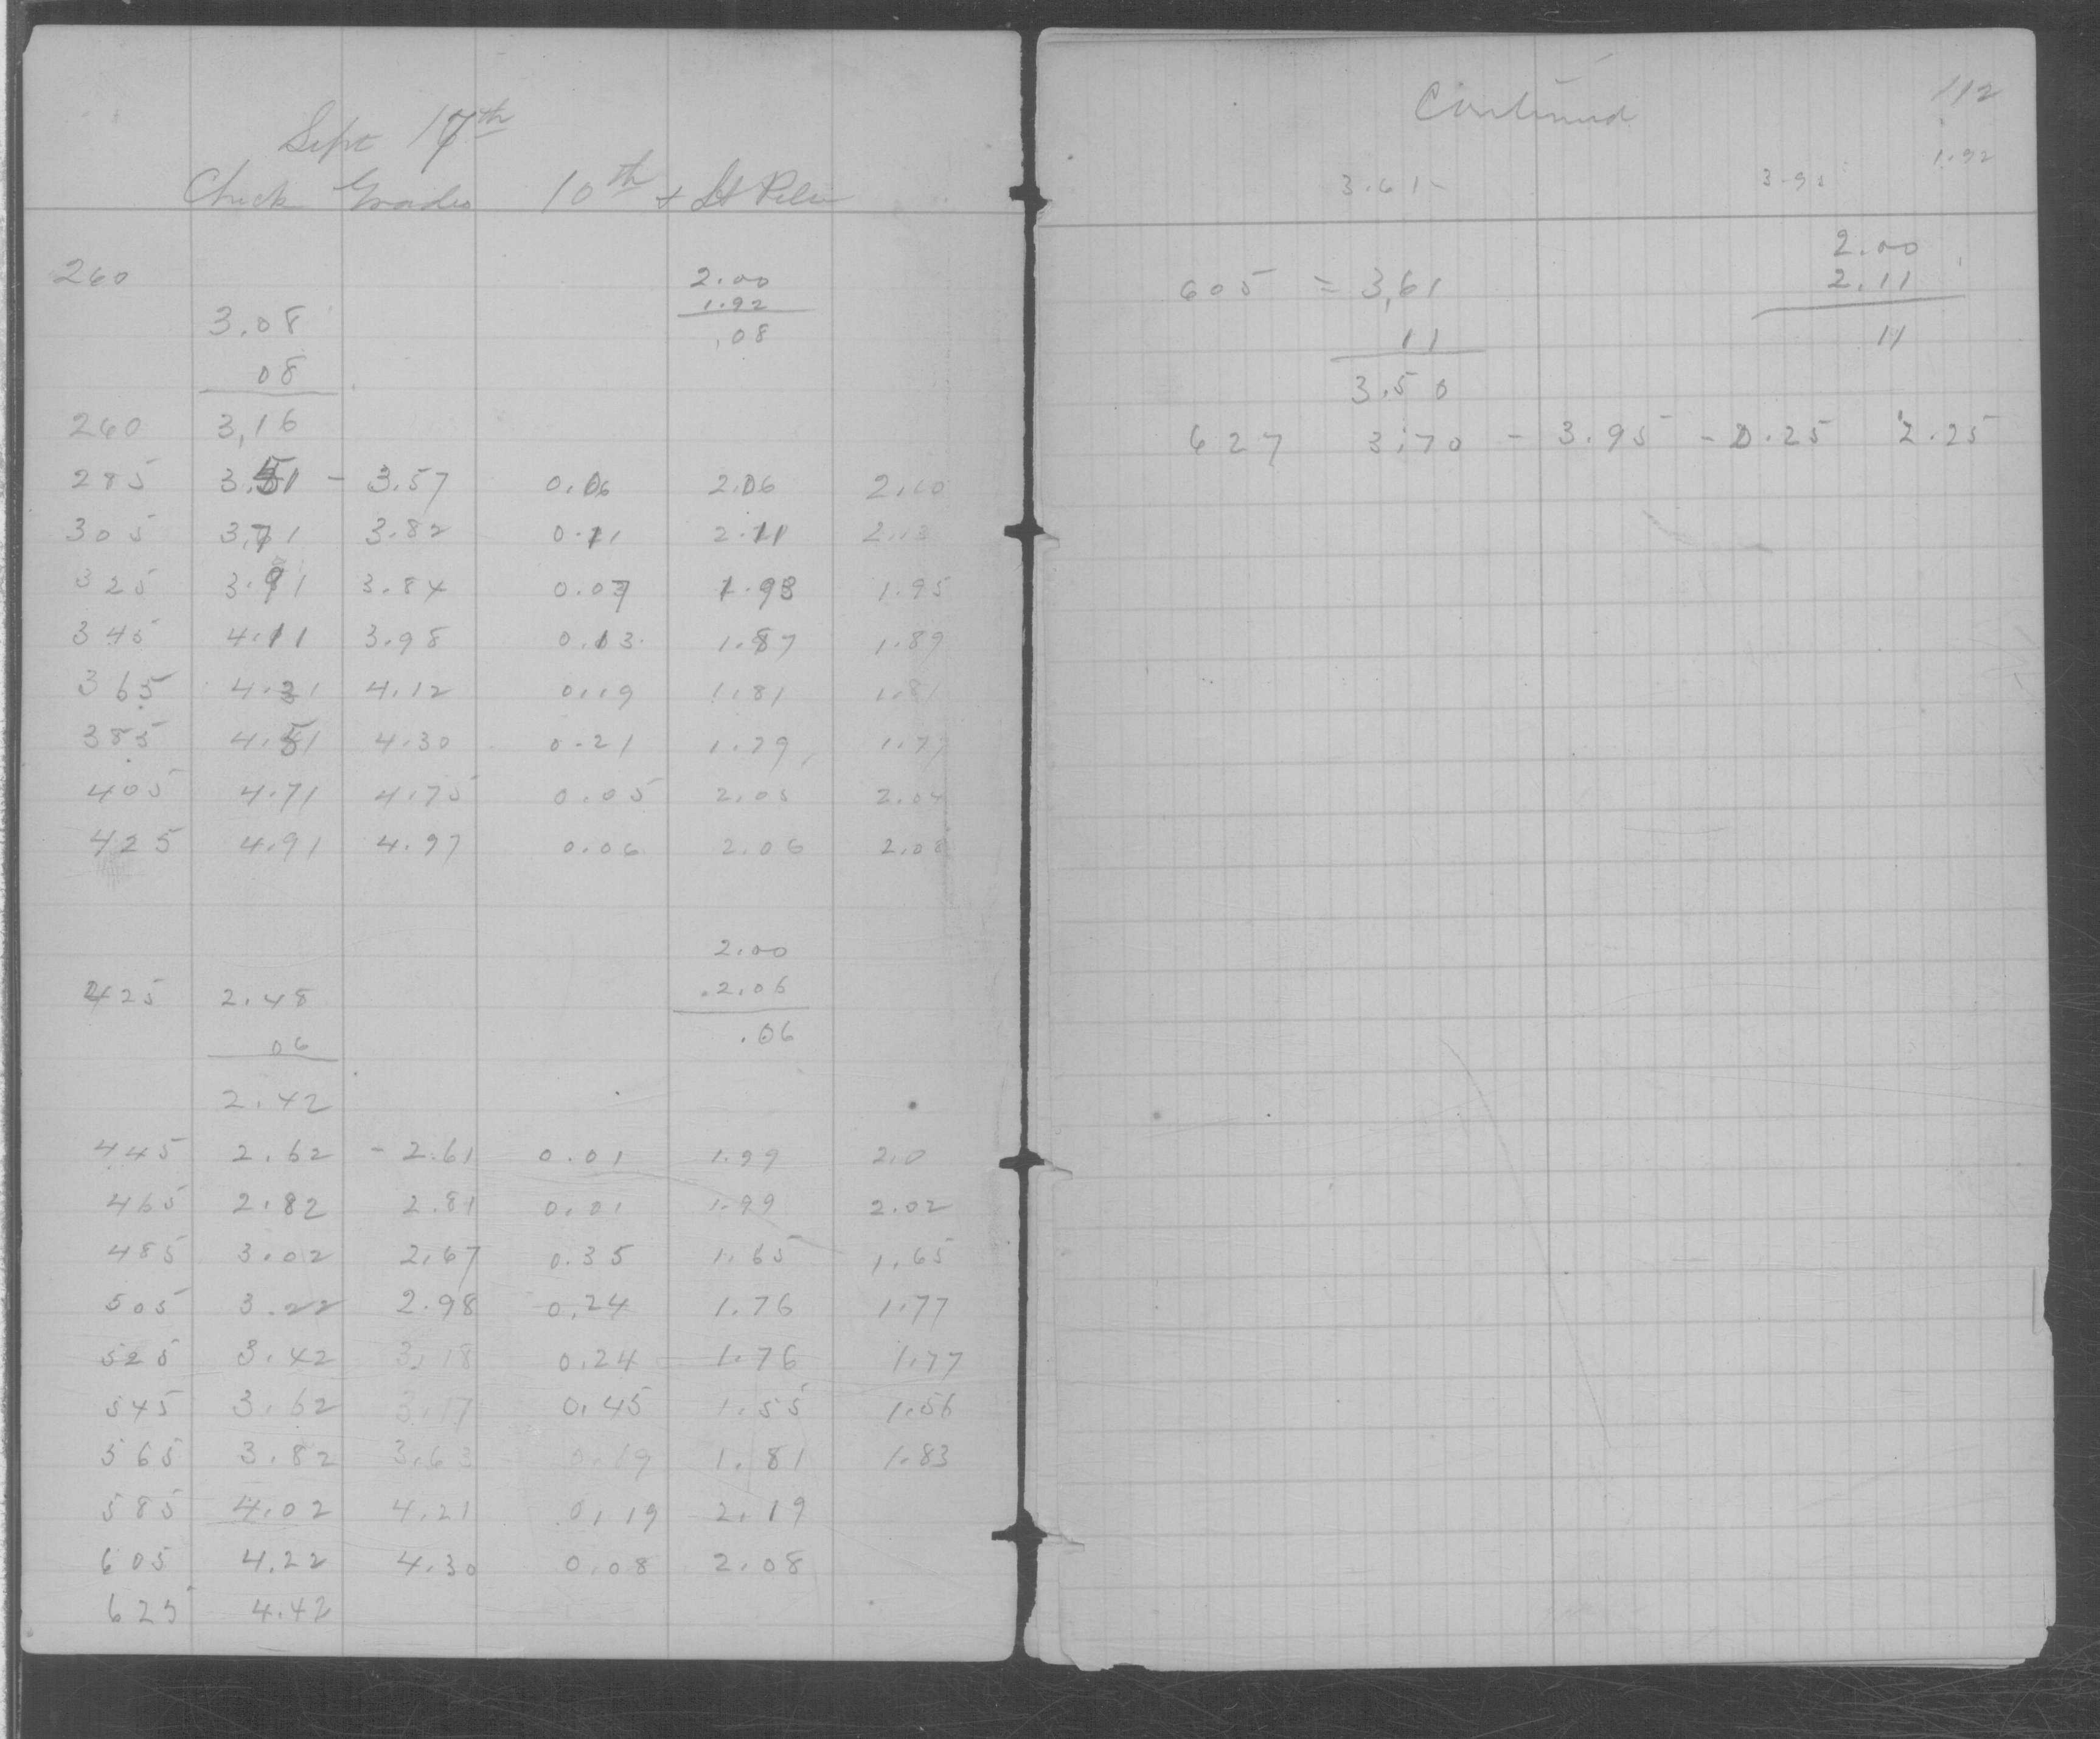 Sept 17th
Check Grades 10th + St Peter
260 2.00
1.92
3.08 .08
08
260 3,16
285 3.51 - 3.57 0.06 2.06 2.10
305 3.71 3.82 0.11 2.11
325 3.91 3.84 0.07 1.93 1.95
345 4.11 3.98 0.13 1.87 1.89
365 4.31 4.12 0.19 1.81 1.81
385 4.51 4.30 0.21 1.79 1.77
405 4.71 4.75 0.05 2.05 2.04
425 4.91 4.97 0.06 2.06 2.08
2.00
425 2.48 .2.06
06 .06
2.42
445 2.62 - 2.61 0.01 1.99 2.0
465 2.82 2.81 0.01 1.99 2.02
485 3.02 2.67 0.35 1.65 1.65
505 3.22 2.98 0.24 1.76 1.77
525 3.42 3.18 0.24 1.76 1.77
545 3.62 3.17 0.45 1.55 1.56
565 3.82 3.63 0.19 1.81 1.83
585 4.02 4.21 0.19 2.19
605 4.22 4.30 0.08 2.08
625 4.42
Continued 112
1.92
3.61
2.00
605 = 3,61 2.11
11 11
3.50
627 3.70 - 3.95 - 0.25 2.25